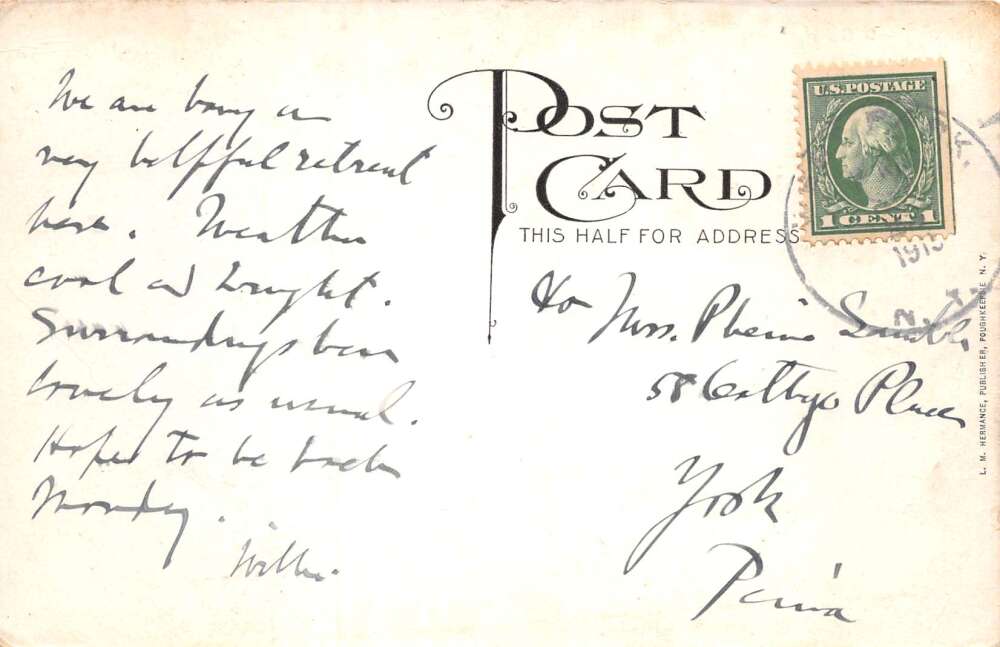 We are having a
very helpful retreat
here. Weather
cool and bright.
Surroundings here
lovely as usual.
Hope to be back
Monday.
Willis.
POST
CARD
THIS HALF FOR ADDRESS
U.S. POSTAGE
1 CENT 1
1915
N.
To Mrs. Phenie
58 Cottage Place
York
Penna
L. M. HERMANCE, PUBLISHER, POUGHKEEPSIE N. Y.